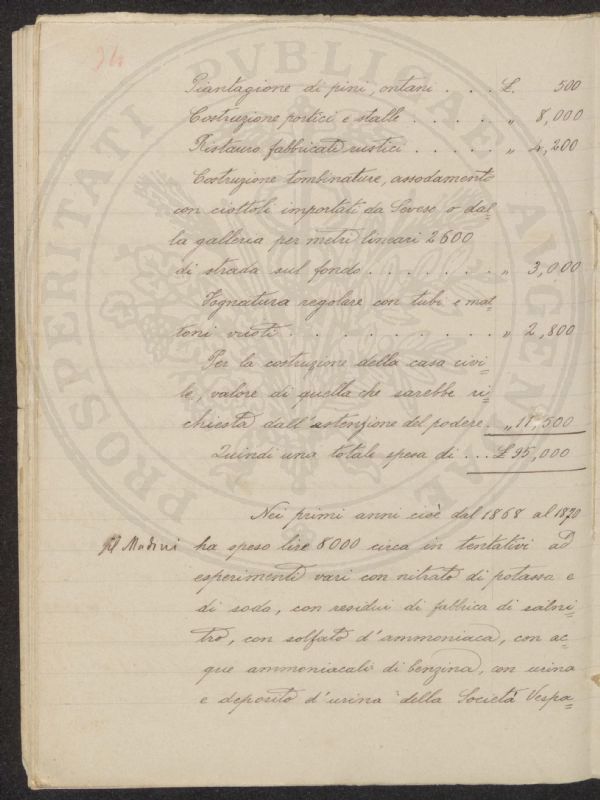 34
Piantagione di pini, ontani . . . £. 500
Costruzione portici e stalle . . . . . „ 8,000
Ristauro fabbricati rustici . . . . . „ 4,200
Costruzione tombinature, assodamento
con ciottoli importati da Seveso o dal=
la galleria per metri lineari 2600
di strada sul fondo . . . . . . . „ 3,000
Fognatura regolare con tubi e mat=
toni vuoti . . . . . . . . . . . „ 2,800
Per la costruzione della casa civi=
le, valore di quella che sarebbe ri=
chiesta dall'estenzione del podere . „ 11,500
Quindi una totale spesa di . . . £ 95,000
Nei primi anni cioè dal 1868 al 1870
il Madini ha speso lire 8000 circa in tentativi ad
esperimenti vari con nitrato di potassa e
di soda, con residui di fabbrica di salni=
tro, con solfato d'ammoniaca, con ac=
que ammoniacali di benzina, con urina
e deposito d'urina della Società Vespa=
PROSPERITATI PUBLICAE AUGENDAE